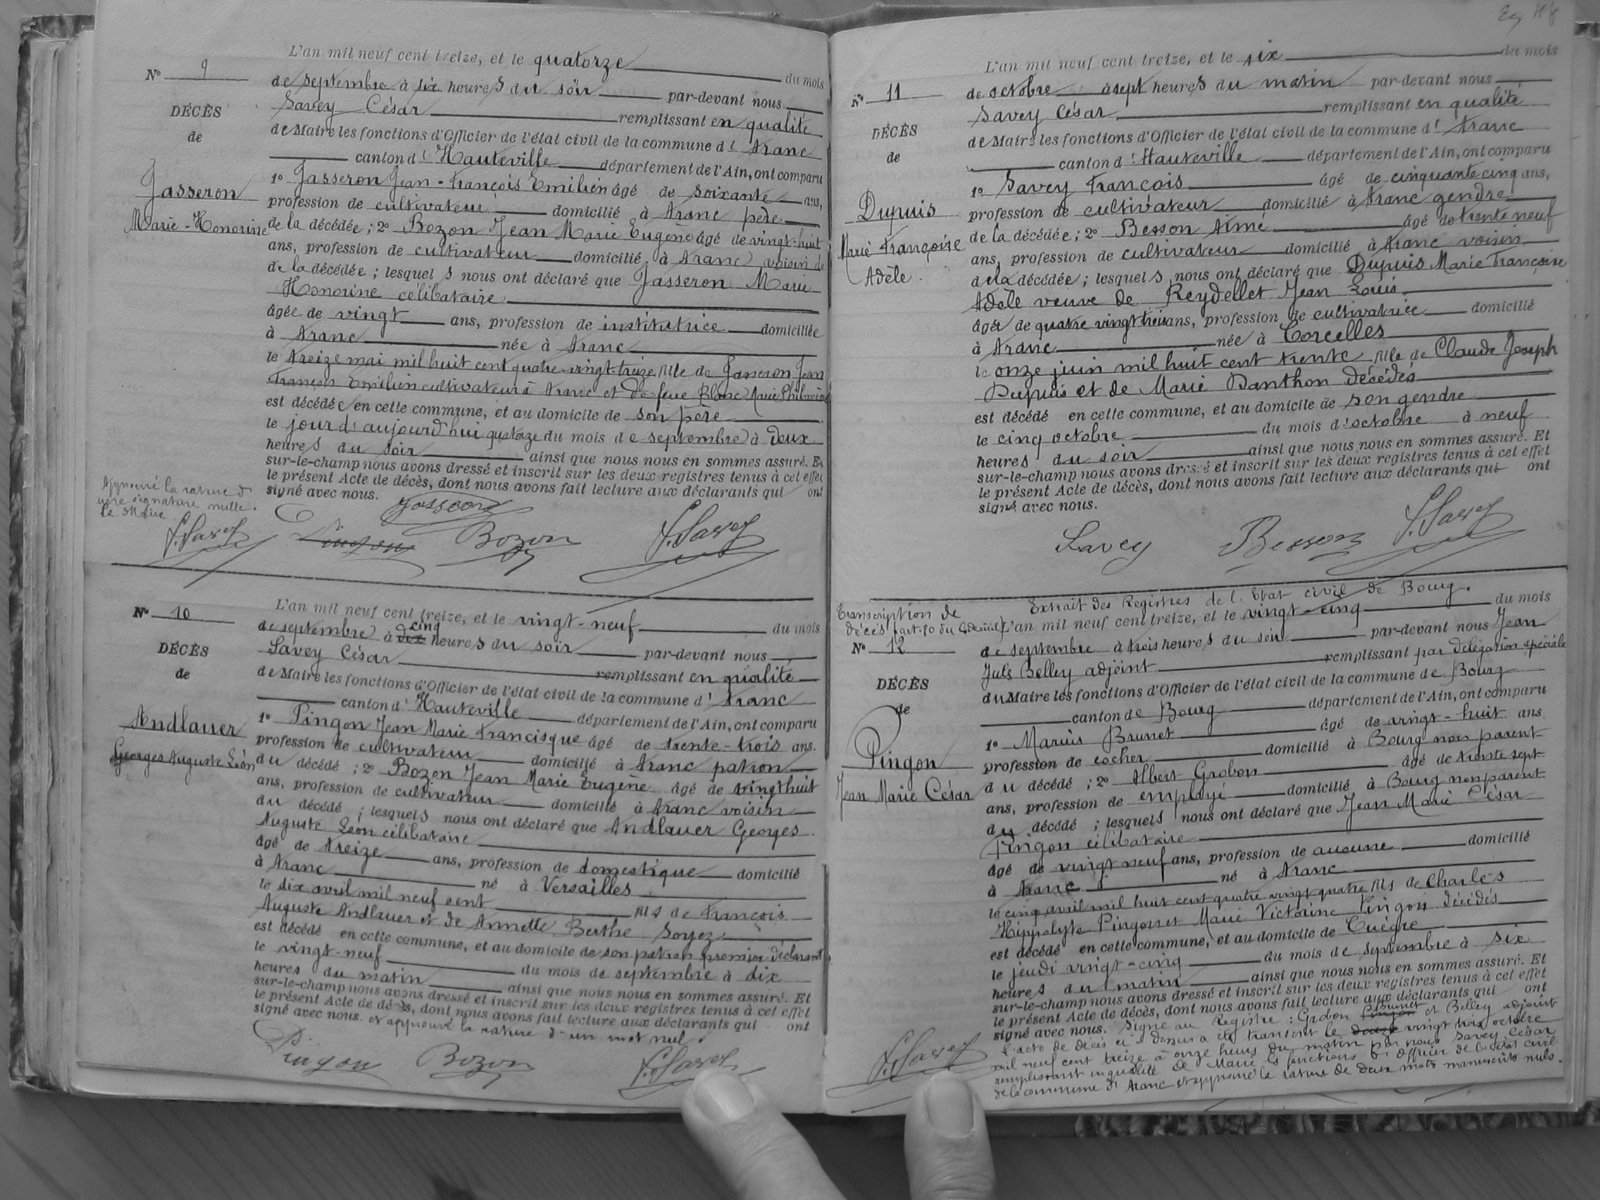 L'an mil neuf cent treize, et le quatorze du mois
N° 9
de septembre à six heures du soir par-devant nous
Savey César remplissant en qualité
DÉCÈS
de Maire les fonctions d'Officier de l'état civil de la commune d' Aranc
de
canton d' Hauteville département de l'Ain, ont comparu
1° Jasseron Jean-François Emilien âgé de soixante ans,
Jasseron
profession de cultivateur domicilié à Aranc père
Marie-Honorine
de la décédée ; 2° Bozon Jean Marie Eugène âgé de vingt-huit
ans, profession de cultivateur domicilié à Aranc voisin de
de la décédée ; lesquels nous ont déclaré que Jasseron Marie
Honorine célibataire
âgée de vingt ans, profession de institutrice domiciliée
à Aranc née à Aranc
le treize mai mil huit cent quatre-vingt treize fille de Jasseron Jean
François Emilien cultivateur à Aranc et de feue Blanc Marie
est décédée en cette commune, et au domicile de son père
le jour d'aujourd'hui quatorze du mois de septembre à deux
heures du soir ainsi que nous nous en sommes assuré. Et
sur-le-champ nous avons dressé et inscrit sur les deux registres tenus à cet effet
le présent Acte de décès, dont nous avons fait lecture aux déclarants qui ont
signé avec nous.
Approuvé la rature d'
une signature nulle.
Le Maire
Jasseron
C. Savey Pingon Bozon C. Savey
L'an mil neuf cent treize, et le vingt-neuf du mois
N° 10
cinq
de septembre à dix heures du soir par-devant nous
Savey César remplissant en qualité
DÉCÈS
de Maire les fonctions d'Officier de l'état civil de la commune d' Aranc
de
canton d' Hauteville département de l'Ain, ont comparu
Andlauer
1° Pingon Jean Marie Francisque âgé de trente-trois ans.
profession de cultivateur domicilié à Aranc patron
Georges Auguste Léon
du décédé ; 2° Bozon Jean Marie Eugène âgé de vingt huit
ans, profession de cultivateur domicilié à Aranc voisin
du décédé ; lesquels nous ont déclaré que Andlauer Georges
Auguste Léon célibataire
âgé de treize ans, profession de domestique domicilié
à Aranc né à Versailles
le dix avril mil neuf cent fils de François
Auguste Andlauer et de Annette Berthe Soyez
est décédé en cette commune, et au domicile de son patron premier déclarant
le vingt-neuf du mois de septembre à dix
heures du matin ainsi que nous nous en sommes assuré. Et
sur-le-champ nous avons dressé et inscrit sur les deux registres tenus à cet effet
le présent Acte de décès, dont nous avons fait lecture aux déclarants qui ont
signé avec nous. et approuvé la rature d'un mot nul.
Pingon Bozon C. Savey
L'an mil neuf cent treize, et le six du mois
N° 11
de octobre à sept heures du matin par-devant nous
Savey César remplissant en qualité
DÉCÈS
de Maire les fonctions d'Officier de l'état civil de la commune d' Aranc
de
canton d' Hauteville département de l'Ain, ont comparu
1° Savey François âgé de cinquante cinq ans,
Dupuis
profession de cultivateur domicilié à Aranc gendre
Marie Françoise
Adèle
de la décédée ; 2° Besson Aimé âgé de trente neuf
ans, profession de cultivateur domicilié à Aranc voisin
de la décédée ; lesquels nous ont déclaré que Dupuis Marie Françoise
Adèle veuve de Reydellet Jean Louis
âgée de quatre vingt trois ans, profession de cultivatrice domicilié
à Aranc née à Corcelles
le onze juin mil huit cent trente fille de Claude Joseph
Dupuis et de Marie Danthon décédés
est décédée en cette commune, et au domicile de son gendre
le cinq octobre du mois d'octobre à neuf
heures du soir ainsi que nous nous en sommes assuré. Et
sur-le-champ nous avons dressé et inscrit sur les deux registres tenus à cet effet
le présent Acte de décès, dont nous avons fait lecture aux déclarants qui ont
signé avec nous.
Savey Besson C. Savey
Extrait des Registres de l'Etat civil de Bourg.
Transcription de
décès
L'an mil neuf cent treize, et le vingt-cinq du mois
N° 12
de septembre à trois heures du soir par-devant nous Jean
Jules Belley adjoint remplissant par délégation spéciale
DÉCÈS
du Maire les fonctions d'Officier de l'état civil de la commune de Bourg
de
canton de Bourg département de l'Ain, ont comparu
1° Marius Brunet âgé de vingt-huit ans
Pingon
profession de cocher domicilié à Bourg non parent
Jean Marie César
du décédé ; 2° Albert Grobon âgé de trente sept
ans, profession de employé domicilié à Bourg non parent
du décédé ; lesquels nous ont déclaré que Jean Marie César
Pingon célibataire
âgé de vingt neuf ans, profession de aucune domicilié
à Aranc né à Aranc
le cinq avril mil huit cent quatre vingt quatre fils de Charles
Hippolyte Pingon et Marie Victorine Pingon décédés
est décédé en cette commune, et au domicile de Cuègre
le jeudi vingt-cinq du mois de septembre à six
heures du matin ainsi que nous nous en sommes assuré. Et
sur-le-champ nous avons dressé et inscrit sur les deux registres tenus à cet effet
le présent Acte de décès, dont nous avons fait lecture aux déclarants qui ont
signé avec nous. Signé au Registre : Grobon Brunet et Belley adjoint
L'acte de décès ci-dessus a été transcrit le vingt trois octobre
mil neuf cent treize à onze heures du matin par nous Savey César
remplissant en qualité de Maire les fonctions d'Officier de l'état civil
de la commune d'Aranc et approuvé la rature de deux mots manuscrits nuls.
C. Savey